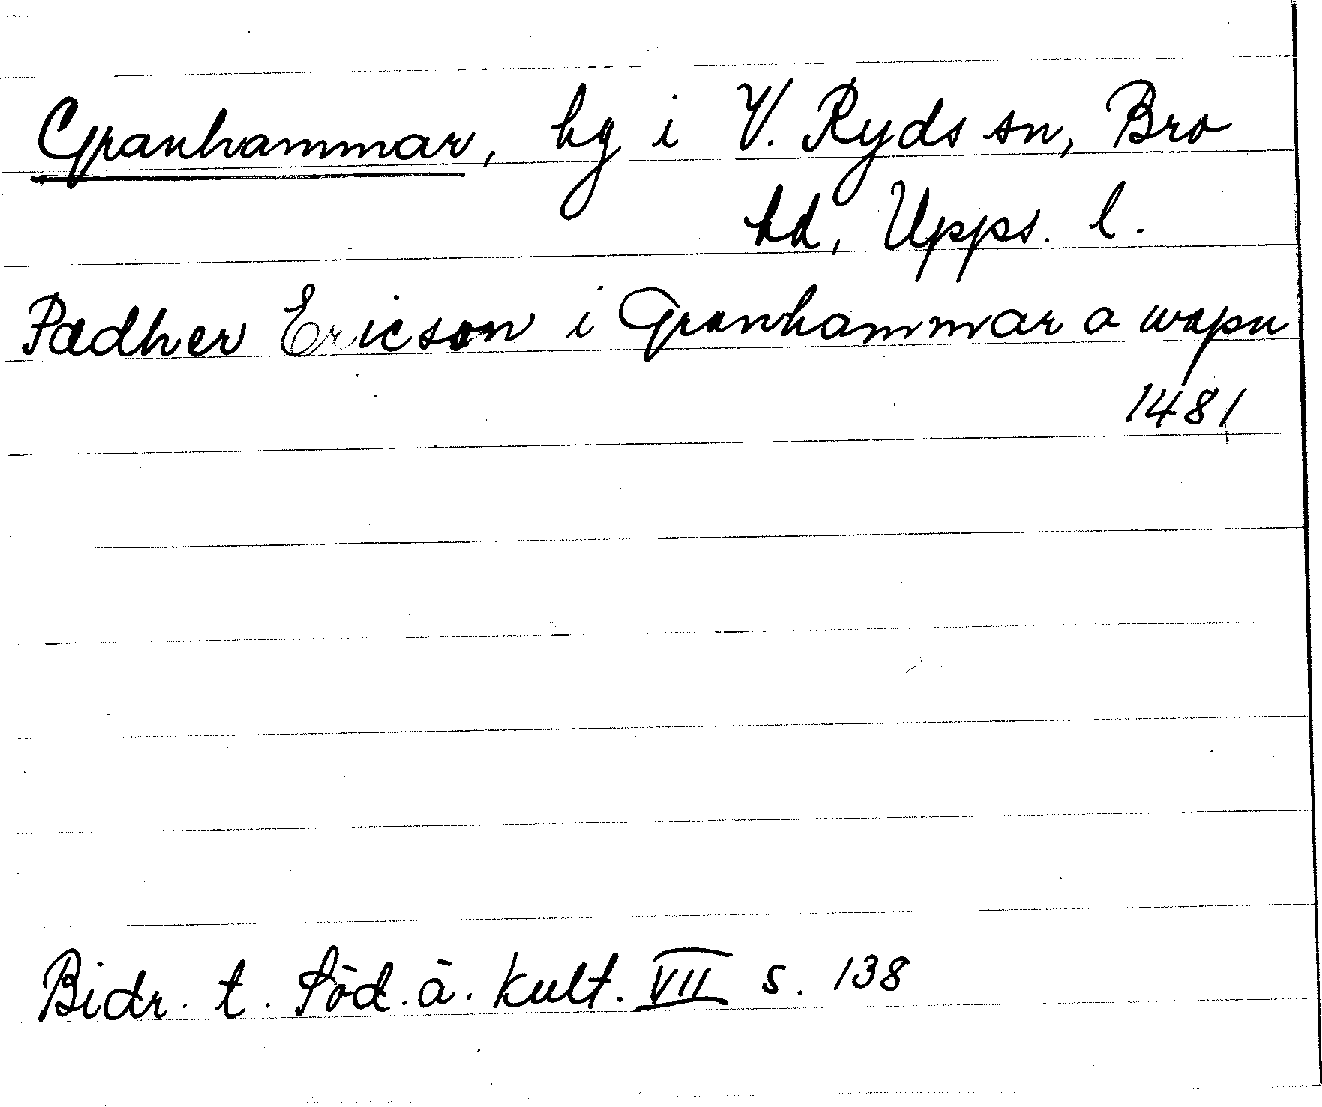 Granhammar, hg i V. Ryds sn, Bro
hd, Upps. l.
Pædher Ericson i Granhammar a wapn
1481
Bidr. t. Söd. ä. kult. VII s. 138